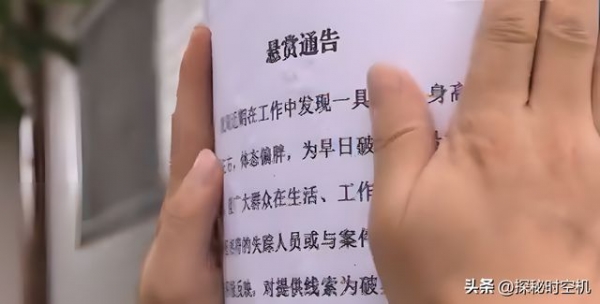 悬赏通告
近期在工作中发现一具 身高
左右，体态偏胖，为早日破
广大群众在生活、工作
的失踪人员或与案件
反映，对提供线索为破
头条 @探秘时空机